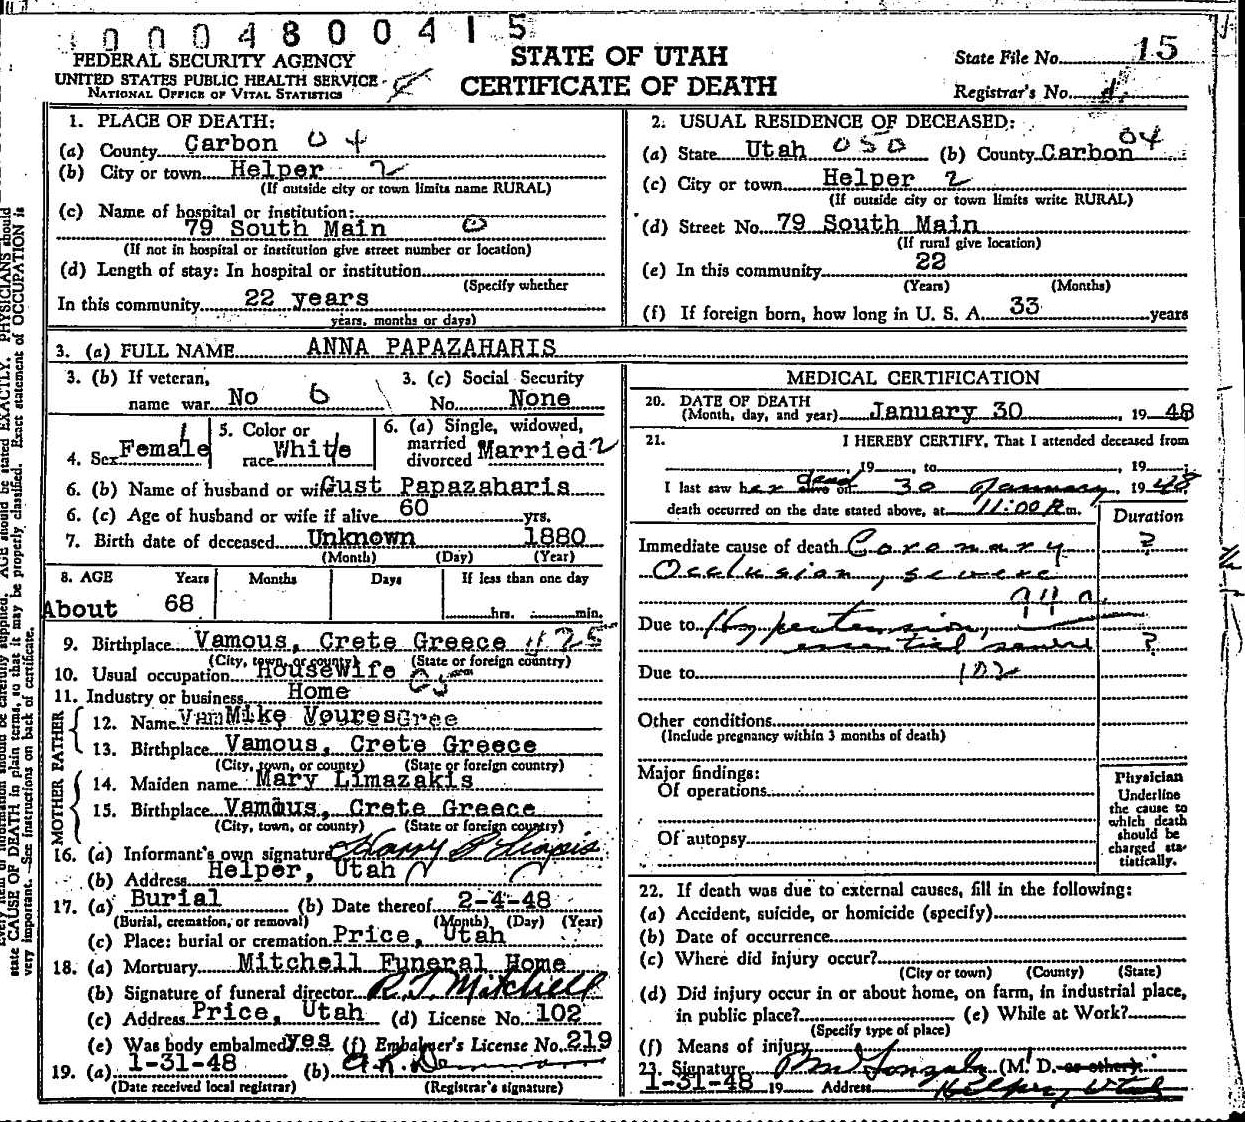 000480041 5
FEDERAL SECURITY AGENCY
UNITED STATES PUBLIC HEALTH SERVICE
NATIONAL OFFICE OF VITAL STATISTICS
STATE OF UTAH
CERTIFICATE OF DEATH
State File No. 15
Registrar's No. 4
1. PLACE OF DEATH:
(a) County Carbon 04
(b) City or town Helper 2
(If outside city or town limits name RURAL)
(c) Name of hospital or institution:
79 South Main 0
(If not in hospital or institution give street number or location)
(d) Length of stay: In hospital or institution
(Specify whether
In this community 22 years
years, months or days)
2. USUAL RESIDENCE OF DECEASED:
(a) State Utah 050 (b) County Carbon 04
(c) City or town Helper 2
(If outside city or town limits write RURAL)
(d) Street No. 79 South Main
(If rural give location)
(e) In this community 22
(Years) (Months)
(f) If foreign born, how long in U. S. A. 33 years
3. (a) FULL NAME ANNA PAPAZAHARIS
3. (b) If veteran,
name war No 6
3. (c) Social Security
No. None
4. Sex Female 1
5. Color or
race White
6. (a) Single, widowed,
married
divorced Married 2
6. (b) Name of husband or wife Gust Papazaharis
6. (c) Age of husband or wife if alive 60 yrs.
7. Birth date of deceased Unknown 1880
(Month) (Day) (Year)
8. AGE Years Months Days If less than one day
About 68 hrs. min.
9. Birthplace Vamous, Crete Greece
(City, town, or county) (State or foreign country)
10. Usual occupation Housewife
11. Industry or business Home
FATHER
12. Name Mike Voures
13. Birthplace Vamous, Crete Greece
(City, town, or county) (State or foreign country)
MOTHER
14. Maiden name Mary Limazakis
15. Birthplace Vamous, Crete Greece
(City, town, or county) (State or foreign country)
16. (a) Informant's own signature Harry P.
(b) Address Helper, Utah
17. (a) Burial (b) Date thereof 2-4-48
(Burial, cremation, or removal) (Month) (Day) (Year)
(c) Place: burial or cremation Price, Utah
18. (a) Mortuary Mitchell Funeral Home
(b) Signature of funeral director R. J. Mitchell
(c) Address Price, Utah (d) License No. 102
(e) Was body embalmed yes (f) Embalmer's License No. 219
19. (a) 1-31-48 (b)
(Date received local registrar) (Registrar's signature)
MEDICAL CERTIFICATION
20. DATE OF DEATH
(Month, day, and year) January 30, 19 48
21. I HEREBY CERTIFY, That I attended deceased from
, 19 , to , 19 ;
I last saw her dead alive on 30 January, 19 48,
death occurred on the date stated above, at 11:00 P.m.
Duration
Immediate cause of death Coronary ?
Occlusion, severe
94a
Due to Hypertension,
essential severe ?
Due to 102
Other conditions
(Include pregnancy within 3 months of death)
Major findings:
Of operations
Of autopsy
Physician
Underline
the cause to
which death
should be
charged sta-
tistically.
22. If death was due to external causes, fill in the following:
(a) Accident, suicide, or homicide (specify)
(b) Date of occurrence
(c) Where did injury occur?
(City or town) (County) (State)
(d) Did injury occur in or about home, on farm, in industrial place,
in public place? (e) While at Work?
(Specify type of place)
(f) Means of injury
23. Signature (M. D. or other)
1-31-48 19 Address Helper, Utah